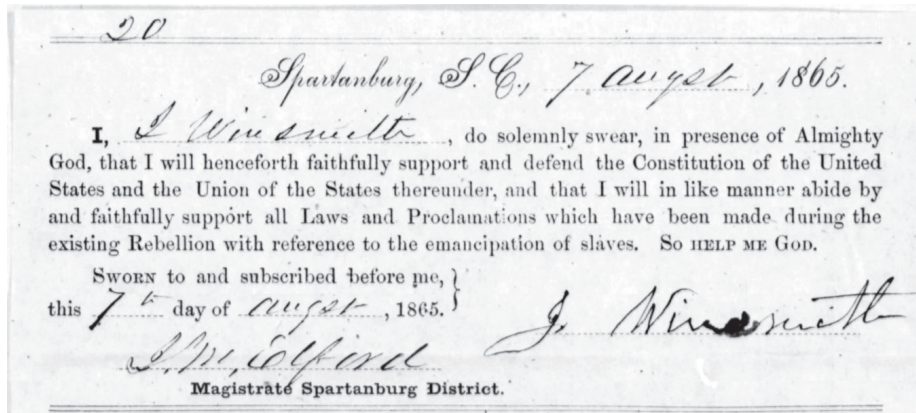 20
Spartanburg, S. C., 7 augst, 1865.
I, J Winsmith, do solemnly swear, in presence of Almighty
God, that I will henceforth faithfully support and defend the Constitution of the United
States and the Union of the States thereunder, and that I will in like manner abide by
and faithfully support all Laws and Proclamations which have been made during the
existing Rebellion with reference to the emancipation of slaves. SO HELP ME GOD.
SWORN to and subscribed before me,
this 7th day of augst, 1865.
J. Winsmith
Magistrate Spartanburg District.